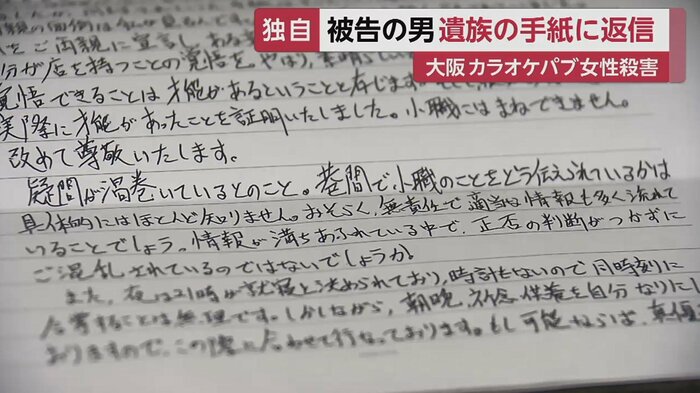 独自
被告の男 遺族の手紙に返信
大阪 カラオケパブ女性殺害
をご両親に宣言し、あな
分が店を持つことの覚悟を。やはり、素晴
覚悟できることは才能があるということと存じます
実際に才能があったことを証明いたしました。小職にはまねできません。
改めて尊敬いたします。
疑問が渦巻いているとのこと。巷間で小職のことをどう伝えられているかは
具体的にはほとんど知りません。おそらく、無責任で適当な情報も多く流れて
いることでしょう。情報が満ちあふれている中で、正否の判断がつかずに
ご混乱されているのではないでしょうか。
また、夜は21時が就寝と決められており、時計もないので同時刻に
合掌することは無理です。しかしながら、朝晩、祈念、供養を自分なりにし
おりますので、この際に合わせて行なっております。もし可能ならば、